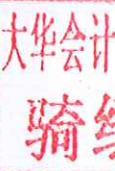 大华会计
骑